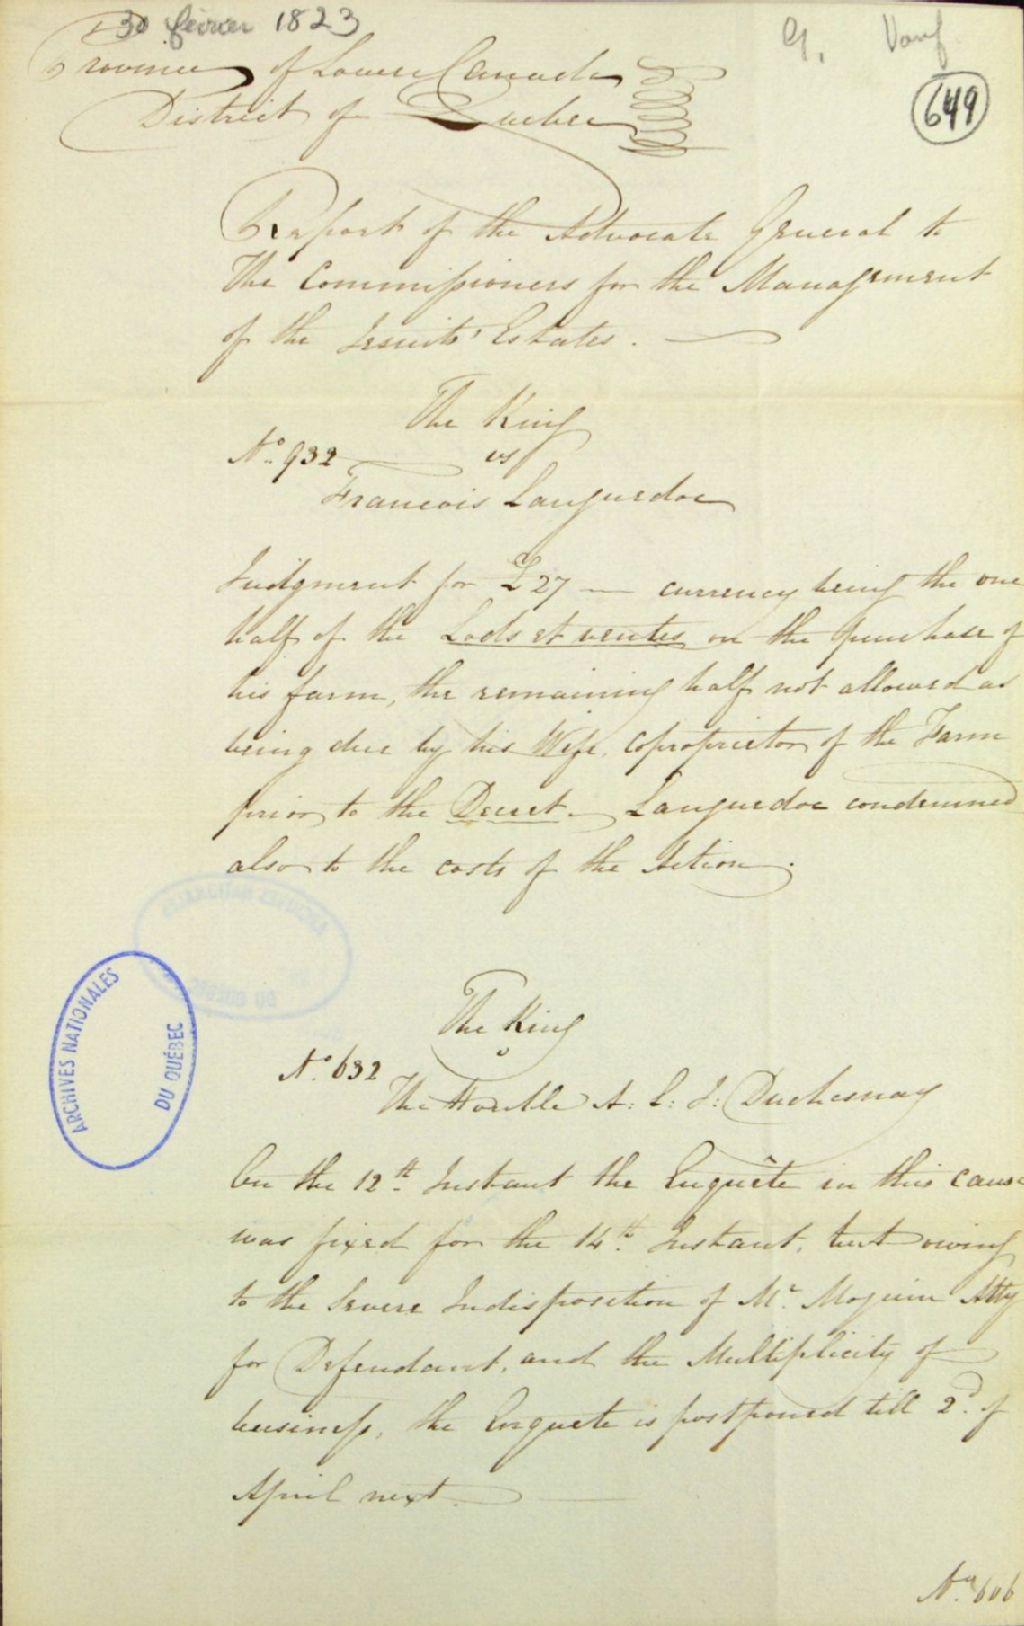 30 février 1823
G. Vanf
649
Province of Lower Canada
District of Quebec
Report of the Advocate General to
The Commissioners for the Management
of the Jesuits' Estates.
The King
No. 932 vs
Francois Languedoc
Judgment for £27 — currency being the one
half of the Lods et ventes on the purchase of
his farm, the remaining half not allowed as
being due by his Wife, coproprietor of the Farm
prior to the Decret. Languedoc condemned
also to the costs of the Action.
The King
No. 632 v
The Honble A: L: J: Duchesnay
On the 12th. Instant the Enquête in this cause
was fixed for the 14th. Instant, but owing
to the Severe Indisposition of Mr. Moquin Atty
for Defendant, and the Multiplicity of
business, the Enquete is postponed till 2d. of
April next.
ARCHIVES NATIONALES
DU QUÉBEC
No. 606